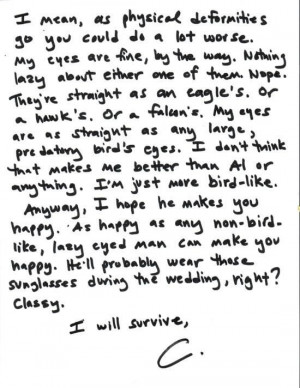 I mean, as physical deformities
go you could do a lot worse.
My eyes are fine, by the way. Nothing
lazy about either one of them. Nope.
They're straight as an eagle's. Or
a hawk's. Or a falcon's. My eyes
are as straight as any large,
predatory bird's eyes. I don't think
that makes me better than Al or
anything. I'm just more bird-like.
Anyway, I hope he makes you
happy. As happy as any non-bird-
like, lazy eyed man can make you
happy. He'll probably wear those
sunglasses during the wedding, right?
Classy.
I will survive,
C.